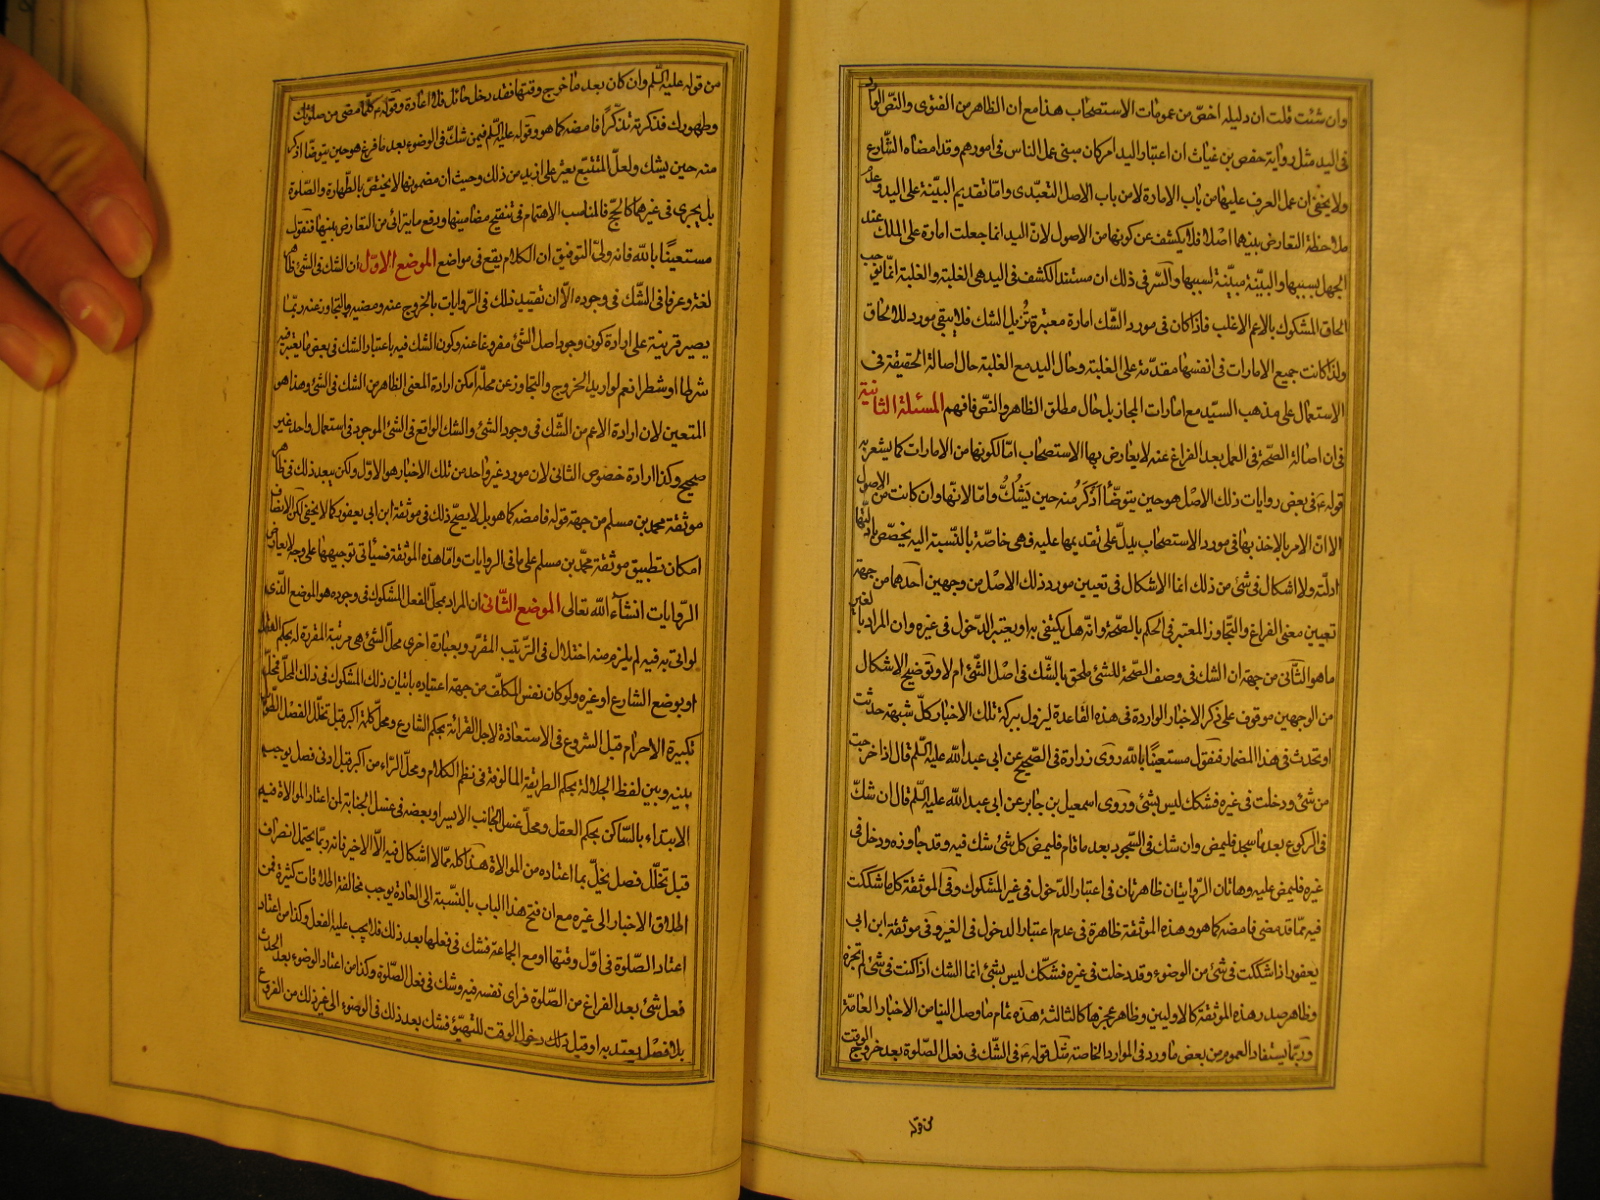 وان شئت قلت ان دليله اخصّ من عمومات الاستصحاب هذا مع ان الظاهر من الفتوى والنصّ الوارد
فى اليد مثل رواية حفص بن غياث ان اعتبار اليد امر كان مبنى عمل الناس فى امورهم وقد امضاه الشّارع
ولا يخفى ان عمل العرف عليها من باب الامارة لا من باب الاصل التعبّدى وامّا تقديم البيّنة على اليد وعدم
ملاحظة التعارض بينهما اصلا فلا يكشف عن كونها من الاصول لانّ اليد انما جعلت امارة على الملك عند
الجهل بسببها والبيّنة مبيّنة لسببها والسّر فى ذلك ان مستند الكشف فى اليد هى الغلبة والغلبة انمّا توجب
الحاق المشكوك بالاعم الاغلب فاذا كان فى مورد الشّك امارة معتبرة تُزيل الشك فلا يبقى مورد للالحاق
ولذا كانت جميع الامارات فى انفسها مقدّمة على الغلبة وحال اليد مع الغلبة حال اصالة الحقيقة فى
الاستعمال على مذهب السيّد مع امارات المجاز بل حال مطلق الظاهر والنصّ فافهم المسئلة الثانية
فى ان اصالة الصحّة فى العمل بعد الفراغ عنه لا يعارض بها الاستصحاب امّا لكونها من الامارات كما يشعر به
قوله ع فى بعض روايات ذلك الاصل هو حين يتوضّأ اَذكَرُ منه حين يَشُكُّ وامّا لانّها وان كانت من الاصول
الا انّ الامر بالاخذ بها فى مورد الاستصحاب يدلّ على تقديمها عليه فهى خاصّة بالنّسبة اليه يخصّص بادلّتها
ادلّته ولا اشكال فى شئ من ذلك انما الاشكال فى تعيين مورد ذلك الاصل من وجهين احدهما من جهة
تعيين معنى الفراغ والتّجاوز المعتبر فى الحكم بالصّحة وانّه هل يكتفى به او يعتبر الدّخول فى غيره وان المراد بالغير
ما هو الثّانى من جهة ان الشك فى وصف الصّحة للشئ ملحق بالشّك فى اصل الشّئ ام لا وتوضيح الاشكال
من الوجهين موقوف على ذكر الاخبار الواردة فى هذه القاعدة ليزول ببركة تلك الاخبار كلّ شبهة حدثت
او تحدث فى هذا المضمار فنقول مستعينًا بالله روى زرارة فى الصّحيح عن ابى عبد الله عليه السّلم قال اذا خرجت
من شئ ودخلت فى غيره فشكك ليس بشئ وروى اسمعيل بن جابر عن ابى عبد الله عليه السّلم قال ان شكّ
فى الركوع بعد ما سجد فليمض وان شك فى السّجود بعد ما قام فليمض كل شئ شك فيه وقد جاوزه ودخل فى
غيره فليمض عليه وهاتان الرّوايتان ظاهرتان فى اعتبار الدّخول فى غير المشكوك وفى الموثقة كل ما شككت
فيه ممّا قد مضى فامضه كما هو وهذه الموثقة ظاهرة فى عدم اعتبار الدخول فى الغير وفى موثقة ابن ابى
يعفور اذا شككت فى شئ من الوضوء وقد دخلت فى غيره فشكّك ليس بشئ انما الشك اذا كنت فى شئ لم تجزه
وظاهر صدر هذه الموثقة كالاوليين وظاهر عجزها كالثالثة هذه تمام ما وصل الينا من الاخبار العامّة
وربّما يستفاد العموم من بعض ما ورد فى الموارد الخاصّة مثل قوله ع فى الشّك فى فعل الصّلوة بعد خروج الوقت
من قوله
من قوله عليه السّلم وان كان بعد ما خرج وقتها فقد دخل حائل فلا اعادة وقوله ع كلّما مضى من صلوتك
وطهورك فذكرته تذكّرًا فامضه كما هو وقوله عليه السّلم فيمن شكّ فى الوضوء بعد ما فرغ هو حين يتوضّا اذكر
منه حين يشك ولعلّ المتتبّع يعثر على ازيد من ذلك وحيث ان مضمونها لا يختصّ بالطّهارة والصّلوة
بل يجرى فى غيرهما كالحجّ فالمناسب الاهتمام فى تنقيح مضامينها ورفع ما يترائى من التعارض بينها فنقول
مستعينًا بالله فانه ولىّ التوفيق ان الكلام يقع فى مواضع الموضع الاوّل ان الشك فى الشئ ظاهر
لغة وعرفا فى الشّك فى وجوده الّا ان تقييد ذلك فى الرّوايات بالخروج عنه ومضيه والتجاوز عنه ربّما
يصير قرينة على ارادة كون وجود اصل الشئ مفروغا عنه وكون الشك فيه باعتبار الشك فى بعض ما يعتبر فيه
شرطا او شطرا نعم لو اريد الخروج والتجاوز عن محلّه امكن ارادة المعنى الظاهر من الشك فى الشئ وهذا هو
المتعين لان ارادة الاعم من الشّك فى وجود الشئ والشك الواقع فى الشئ الموجود فى استعمال واحد غير
صحيح وكذا ارادة خصوص الثانى لان مورد غير واحد من تلك الاخبار هو الاوّل ولكن يبعد ذلك فى ظاهر
موثقة محمد بن مسلم من جهة قوله فامضه كما هو بل لا يصحّ ذلك فى موثقة ابن ابى يعفور كما لا يخفى لكن الانصاف
امكان تطبيق موثقة محمّد بن مسلم على ما فى الروايات وامّا هذه الموثقة فسيأتى توجيهها على وجه لا يعارض
الرّوايات انشآء الله تعالى الموضع الثّانى ان المراد بمحلّ الفعل المشكوك فى وجوده هو الموضع الّذى
لو اتى به فيه لم يلزم منه اختلال فى التّرتيب المقرّر وبعبارة اخرى محلّ الشئ هى مرتبة المقررة له بحكم العقل
او بوضع الشارع او غيره ولو كان نفس المكلّف من جهة اعتياده باتيان ذلك المشكوك فى ذلك المحلّ فمحلّ
تكبيرة الاحرام قبل الشروع فى الاستعاذة لاجل القرائة بحكم الشارع ومحلّ كلمة اكبر قبل تخلّل الفصل الطّويل
بينه وبين لفظ الجلالة بحكم الطريقة المالوفة فى نظم الكلام ومحلّ الرّاء من اكبر قبل ادنى فصل يوجب
الابتداء بالسّاكن بحكم العقل ومحلّ غسل الجانب الايسر او بعضه فى غسل الجنابة لمن اعتاد الموالاة فيه
قبل تخلّل فصل يخلّ بما اعتاده من الموالاة هذا كله ممّا لا اشكال فيه الّا الاخير فانه ربّما يحتمل انصراف
اطلاق الاخبار الى غيره مع ان فتح هذا الباب بالنّسبة الى العادة يوجب مخالفة اطلاقات كثيرة فمن
اعتاد الصّلوة فى اوّل وقتها او مع الجماعة فشك فى فعلها بعد ذلك فلا يجب عليه الفعل وكذا من اعتاد
فعل شئ بعد الفراغ من الصّلوة فراى نفسه فيه وشك فى فعل الصّلوة وكذا من اعتاد الوضوء بعد الحدث
بلا فصل يعتد به او قبل دخول الوقت للتهيّؤ فشك بعد ذلك فى الوضوء الى غير ذلك من الفروع